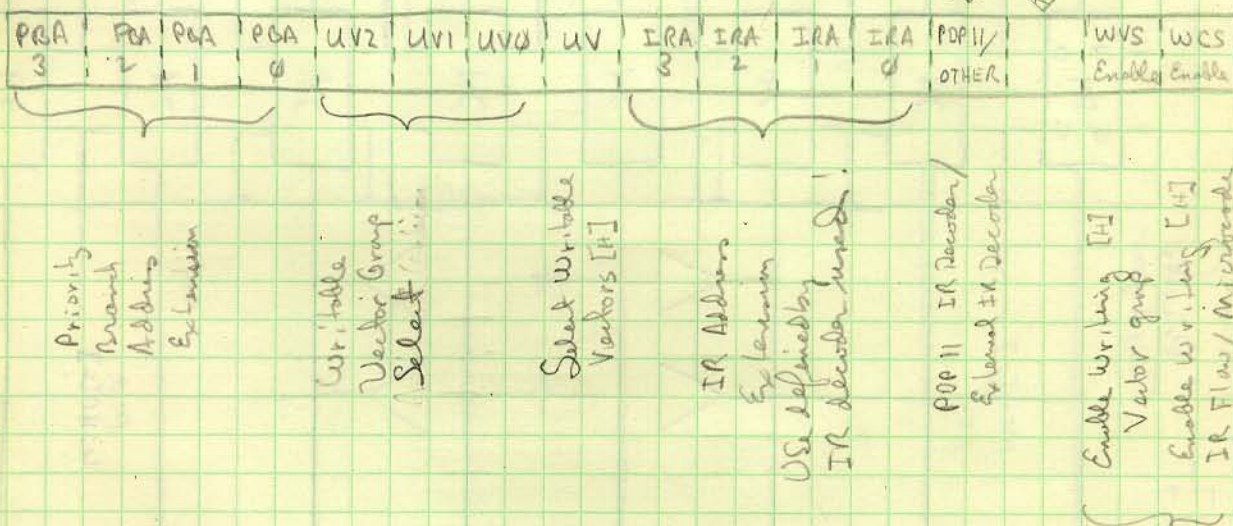 PBA PBA PBA PBA UV2 UV1 UVØ UV IRA IRA IRA IRA PDP11/ WVS WCS
3 2 1 Ø 3 2 1 Ø OTHER Enable Enable
Priority
Branch
Address
Extension
Writable
Vector Group
Select
Select Writable
Vectors [H]
IR Address
Extension
Use defined by
IR decoder used!
PDP11 IR Decoder/
External IR Decoder
Enable Writing [H]
Vector group
Enable Writing [H]
IR Flow/Microcode